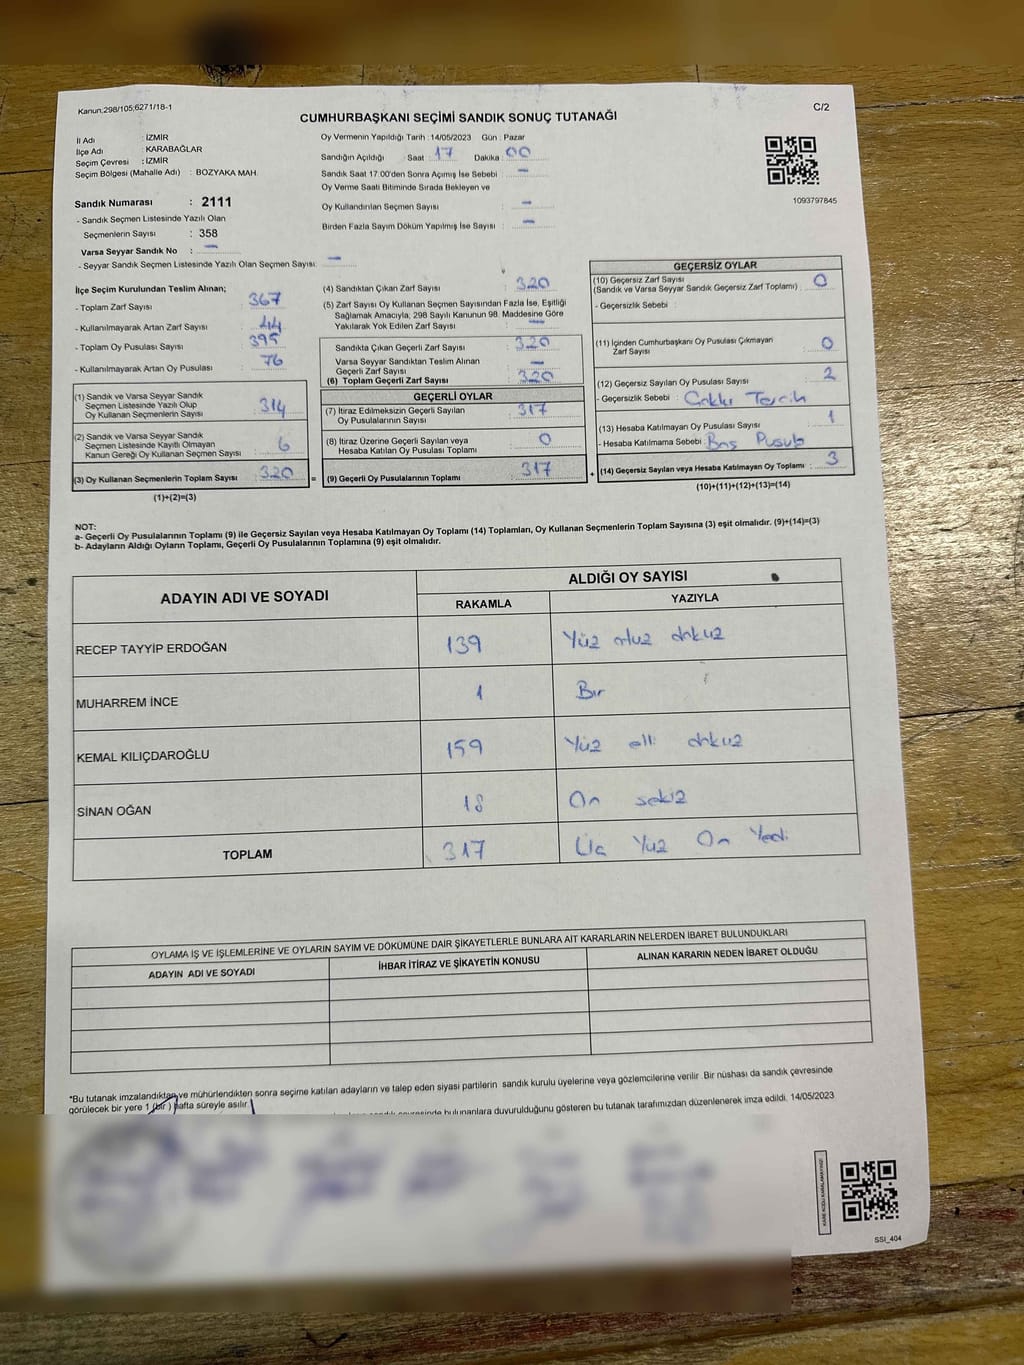 Kanun:298/105;6271/18-1
C/2
CUMHURBAŞKANI SEÇİMİ SANDIK SONUÇ TUTANAĞI
İl Adı : İZMİR
İlçe Adı : KARABAĞLAR
Seçim Çevresi : İZMİR
Seçim Bölgesi (Mahalle Adı) : BOZYAKA MAH.
Sandık Numarası : 2111
- Sandık Seçmen Listesinde Yazılı Olan
Seçmenlerin Sayısı : 358
Varsa Seyyar Sandık No : –
- Seyyar Sandık Seçmen Listesinde Yazılı Olan Seçmen Sayısı: –
Oy Vermenin Yapıldığı Tarih :14/05/2023 Gün : Pazar
Sandığın Açıldığı : Saat : 17 Dakika : 00
Sandık Saat 17.00'den Sonra Açımış İse Sebebi : –
Oy Verme Saati Bitiminde Sırada Bekleyen ve
Oy Kullandırılan Seçmen Sayısı : –
Birden Fazla Sayım Döküm Yapılmış İse Sayısı : –
1093797845
İlçe Seçim Kurulundan Teslim Alınan;
- Toplam Zarf Sayısı : 367
- Kullanılmayarak Artan Zarf Sayısı : 44
- Toplam Oy Pusulası Sayısı : 395
- Kullanılmayarak Artan Oy Pusulası : 76
(1) Sandık ve Varsa Seyyar Sandık
Seçmen Listesinde Yazılı Olup
Oy Kullanan Seçmenlerin Sayısı : 314
(2) Sandık ve Varsa Seyyar Sandık
Seçmen Listesinde Kayıtlı Olmayan
Kanun Gereği Oy Kullanan Seçmen Sayısı : 6
(3) Oy Kullanan Seçmenlerin Toplam Sayısı : 320
(1)+(2)=(3)
(4) Sandıktan Çıkan Zarf Sayısı : 320
(5) Zarf Sayısı Oy Kullanan Seçmen Sayısından Fazla İse, Eşitliği
Sağlamak Amacıyla, 298 Sayılı Kanunun 98. Maddesine Göre
Yakılarak Yok Edilen Zarf Sayısı : –
Sandıkta Çıkan Geçerli Zarf Sayısı : 320
Varsa Seyyar Sandıktan Teslim Alınan
Geçerli Zarf Sayısı : –
(6) Toplam Geçerli Zarf Sayısı : 320
GEÇERLİ OYLAR
(7) İtiraz Edilmeksizin Geçerli Sayılan
Oy Pusulasının Sayısı : 317
(8) İtiraz Üzerine Geçerli Sayılan veya
Hesaba Katılan Oy Pusulası Toplamı : 0
= (9) Geçerli Oy Pusulalarının Toplamı : 317 +
GEÇERSİZ OYLAR
(10) Geçersiz Zarf Sayısı
(Sandık ve Varsa Seyyar Sandık Geçersiz Zarf Toplamı) : 0
- Geçersizlik Sebebi :
(11) İçinden Cumhurbaşkanı Oy Pusulası Çıkmayan
Zarf Sayısı : 0
(12) Geçersiz Sayılan Oy Pusulası Sayısı : 2
- Geçersizlik Sebebi : Çoklu Tercih
(13) Hesaba Katılmayan Oy Pusulası Sayısı : 1
- Hesaba Katılmama Sebebi : Boş Pusula
(14) Geçersiz Sayılan veya Hesaba Katılmayan Oy Toplamı : 3
(10)+(11)+(12)+(13)=(14)
NOT:
a- Geçerli Oy Pusulalarının Toplamı (9) ile Geçersiz Sayılan veya Hesaba Katılmayan Oy Toplamı (14) Toplamları, Oy Kullanan Seçmenlerin Toplam Sayısına (3) eşit olmalıdır. (9)+(14)=(3)
b- Adayların Aldığı Oyların Toplamı, Geçerli Oy Pusulalarının Toplamına (9) eşit olmalıdır.
ADAYIN ADI VE SOYADI
ALDIĞI OY SAYISI
RAKAMLA YAZIYLA
RECEP TAYYİP ERDOĞAN 139 Yüz otuz dokuz
MUHARREM İNCE 1 Bir
KEMAL KILIÇDAROĞLU 159 Yüz elli dokuz
SİNAN OĞAN 18 On sekiz
TOPLAM 317 Üç Yüz On Yedi
OYLAMA İŞ VE İŞLEMLERİNE VE OYLARIN SAYIM VE DÖKÜMÜNE DAİR ŞİKAYETLERLE BUNLARA AİT KARARLARIN NELERDEN İBARET BULUNDUKLARI
ADAYIN ADI VE SOYADI İHBAR İTİRAZ VE ŞİKAYETİN KONUSU ALINAN KARARIN NEDEN İBARET OLDUĞU
*Bu tutanak imzalandıktan ve mühürlendikten sonra seçime katılan adayların ve talep eden siyasi partilerin sandık kurulu üyelerine veya gözlemcilerine verilir. Bir nüshası da sandık çevresinde
görülecek bir yere 1 (bir) hafta süreyle asılır.
bulunanlara duyurulduğunu gösteren bu tutanak tarafımızdan düzenlenerek imza edildi. 14/05/2023
KARE KODU KARALAMAYINIZ!
SSI_404